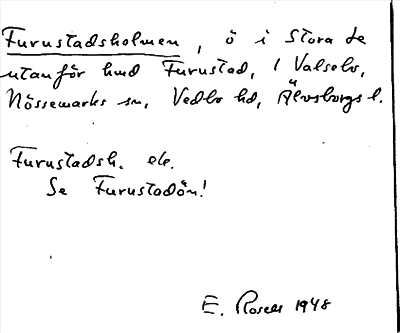 Furustadsholmen, ö i Stora Le
utanför hmd Furustad, i Valsebo,
Nössemarks sn, Vedbo hd, Älvsborgs l.
Furustadsh. ele.
Se Furustadön!
E. Rosell 1948